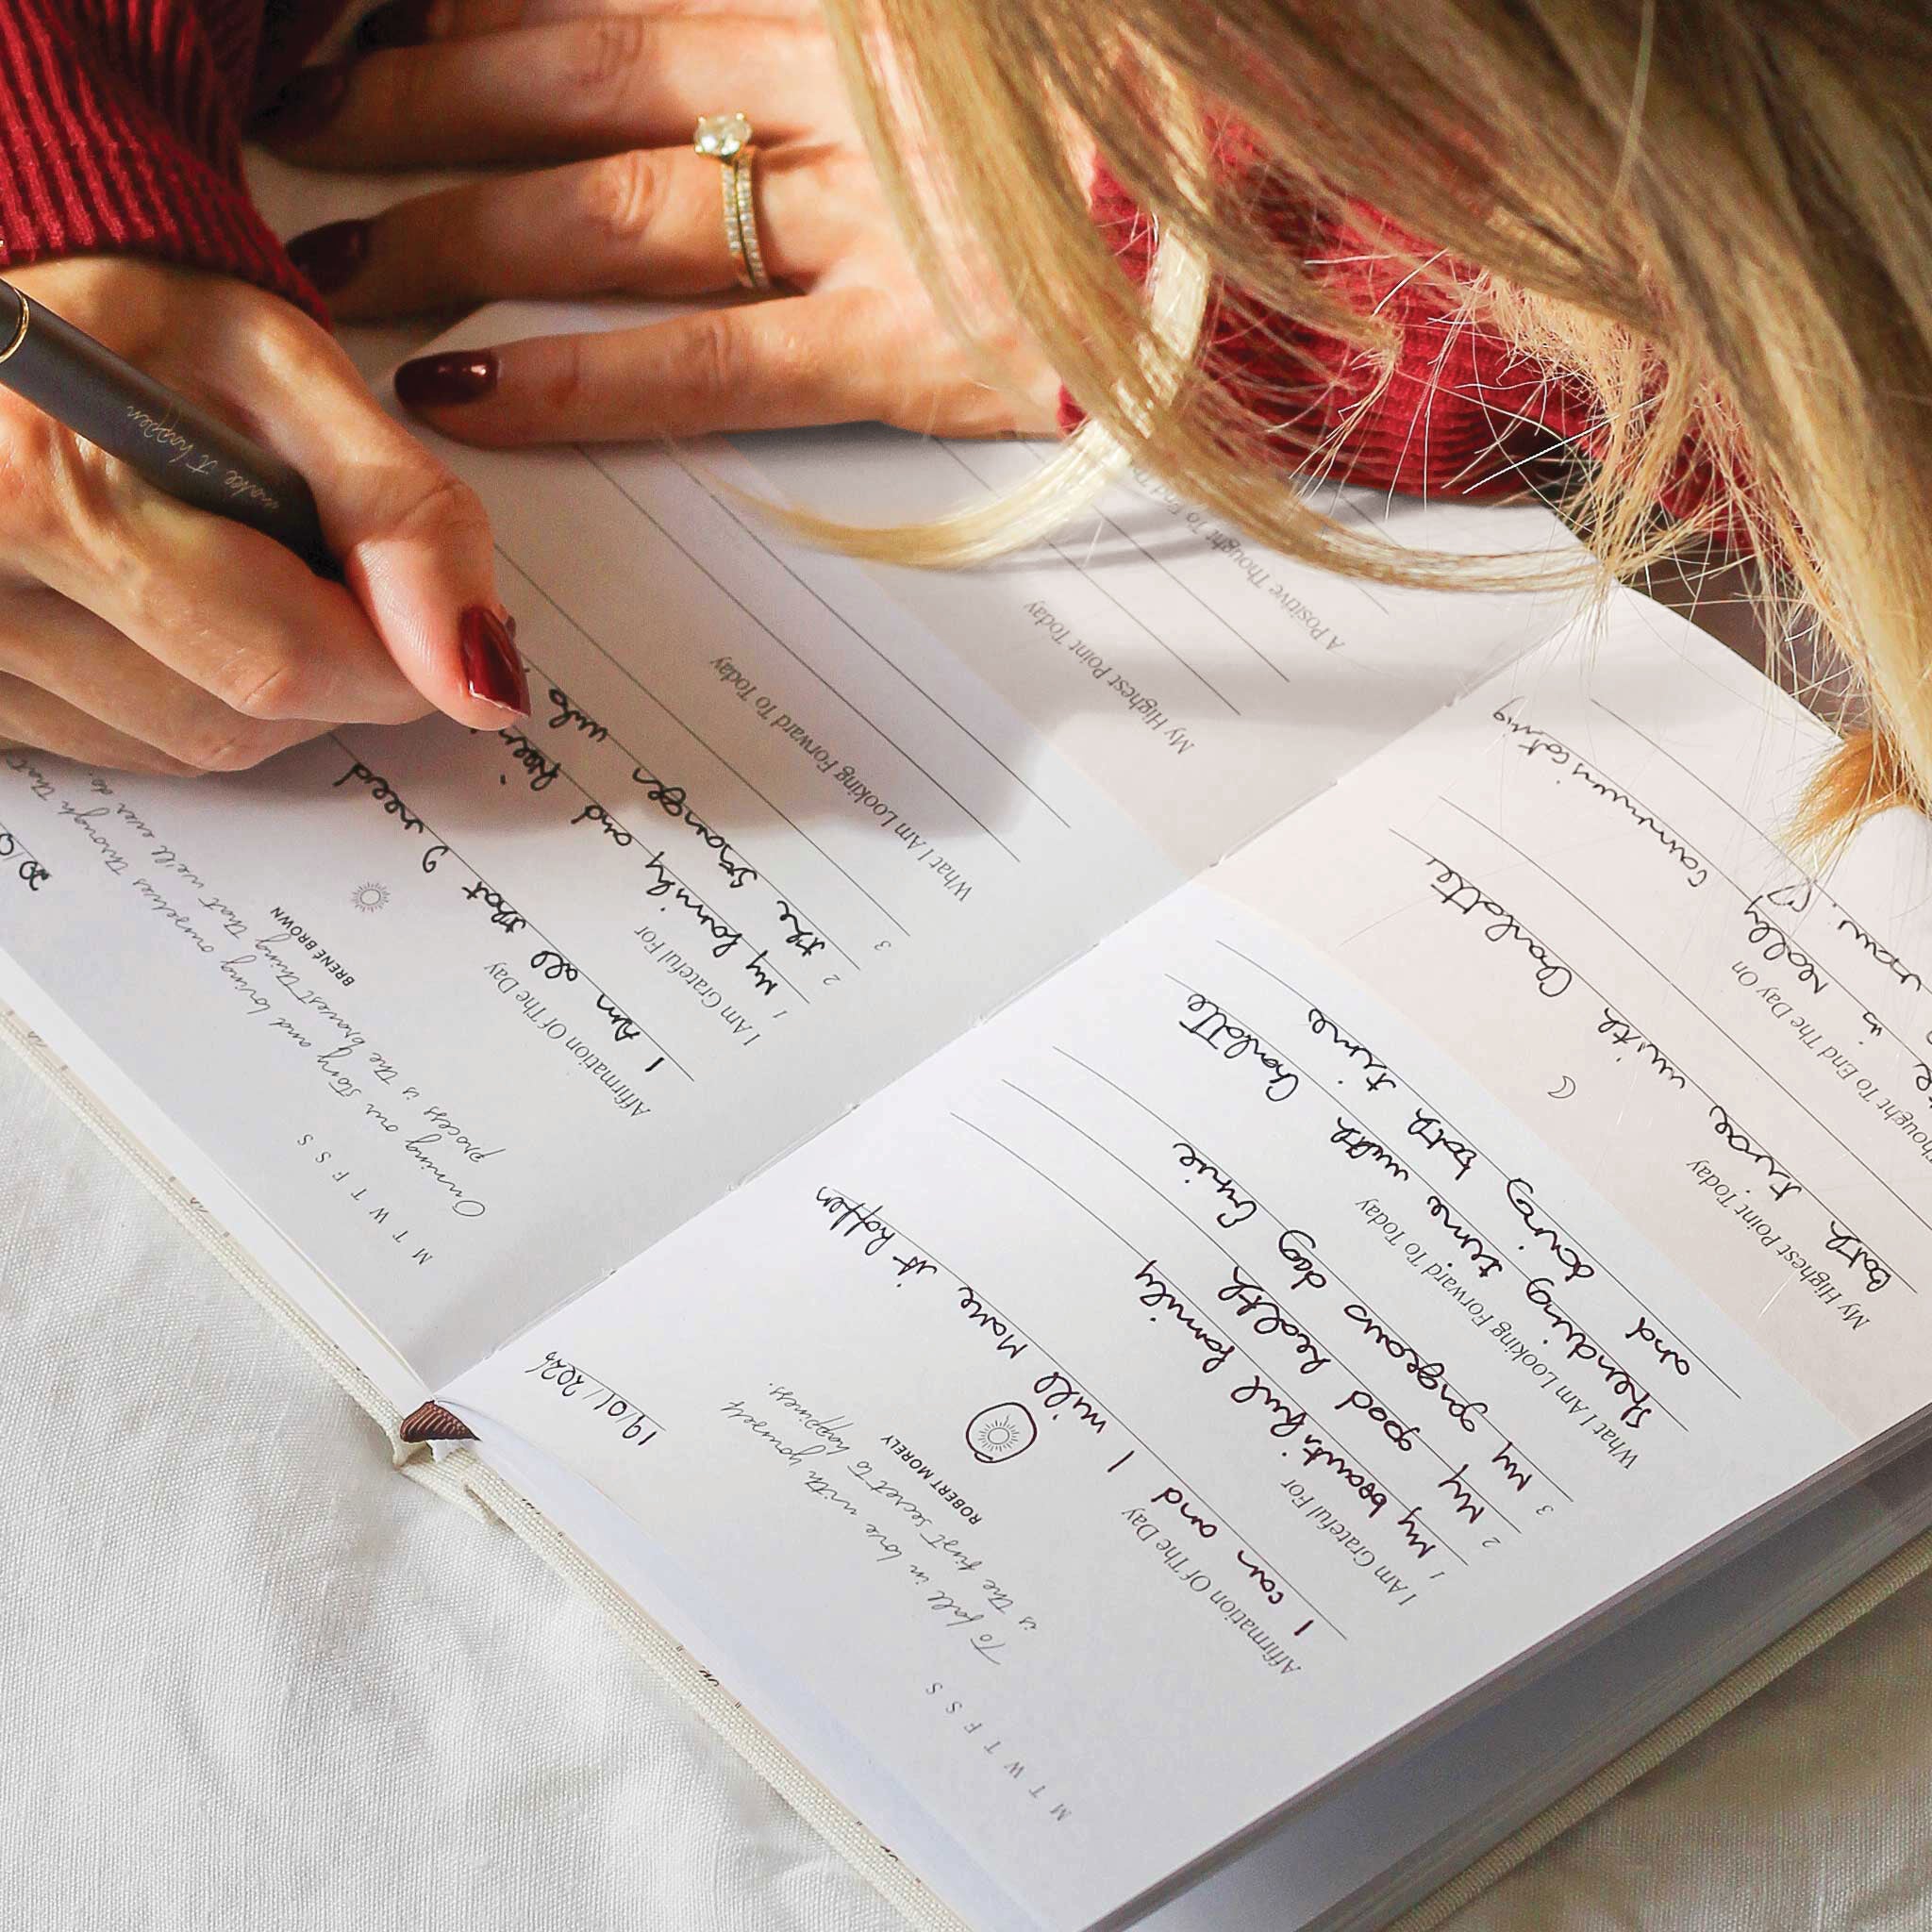 19/01/2024
M T W T F S S
To fall in love with yourself
is the first secret to happiness.
ROBERT MORELY
Affirmation Of The Day
I can and I will Make it happen
I Am Grateful For
1 My beautiful family
2 My good health
3 My gorgeous dog Ernie
What I Am Looking Forward To Today
Spending time with Charlotte
and doing both time
My Highest Point Today
both time with Charlotte
Thought To End The Day On
is really
20/0
M T W T F S S
Owning our story and loving ourselves through that
process is the bravest thing that we'll ever do.
BRENÉ BROWN
Affirmation Of The Day
I Am all that I need
I Am Grateful For
1 My family and
2 the stranger who
3
What I Am Looking Forward To Today
My Highest Point Today
A Positive Thought To End
make it happen